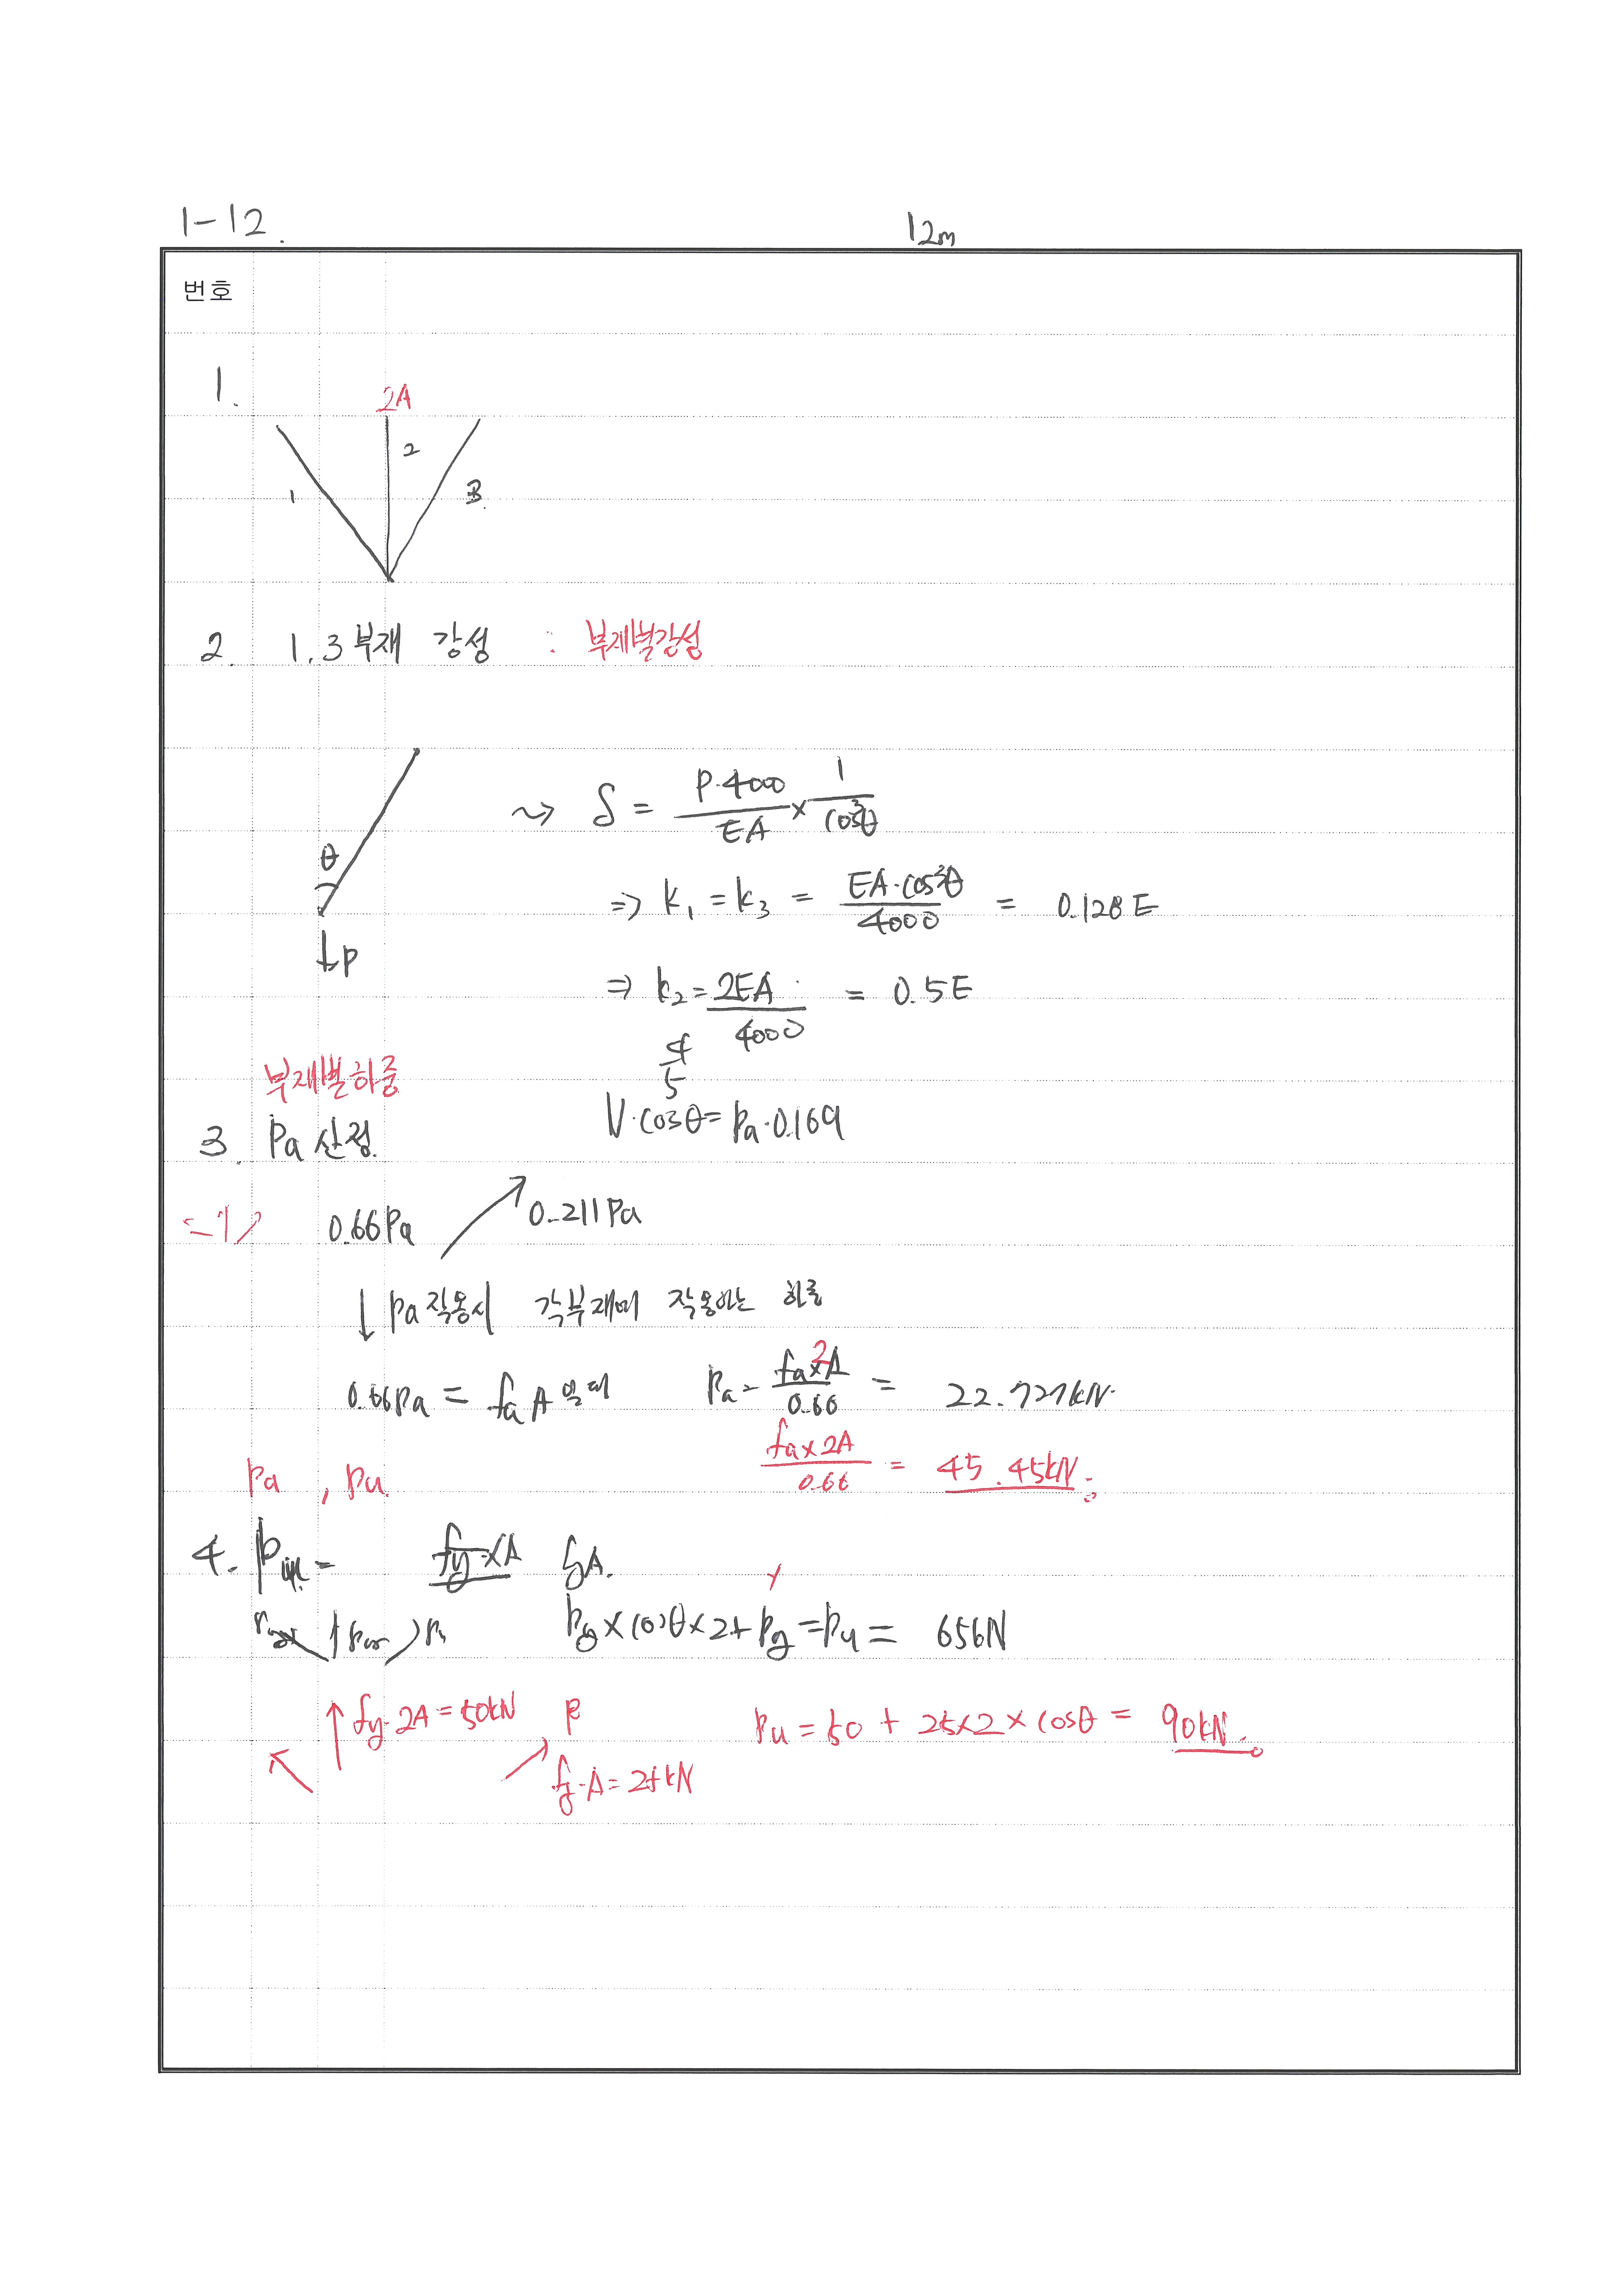 1-12.
12m
번호
1.
2A
1 2 3
2. 1.3 부재 강성 : 부재별강성
θ
↓P
~> δ = P·4000/EA × 1/cos³θ
⇒ k₁ = k₃ = EA·cos³θ/4000 = 0.128E
⇒ k₂ = 2EA/4000 = 0.5E
4/5
부재별하중
V·cosθ = Pa·0.169
3. Pa 산정.
0.66Pa ↗ 0.211Pa
↓ Pa 작용시 각부재에 작용하는 하중
0.66Pa = fa A 일때 Pa = fa×2A/0.66 = 22.727kN.
fa×2A/0.66 = 45.45kN.
Pa, Pu.
4. fy×A
Py×cosθ×2+Py = Pu = 656N
↑ fy·2A = 50kN
Pu = 50 + 25×2×cosθ = 90kN.
fy·A = 25kN